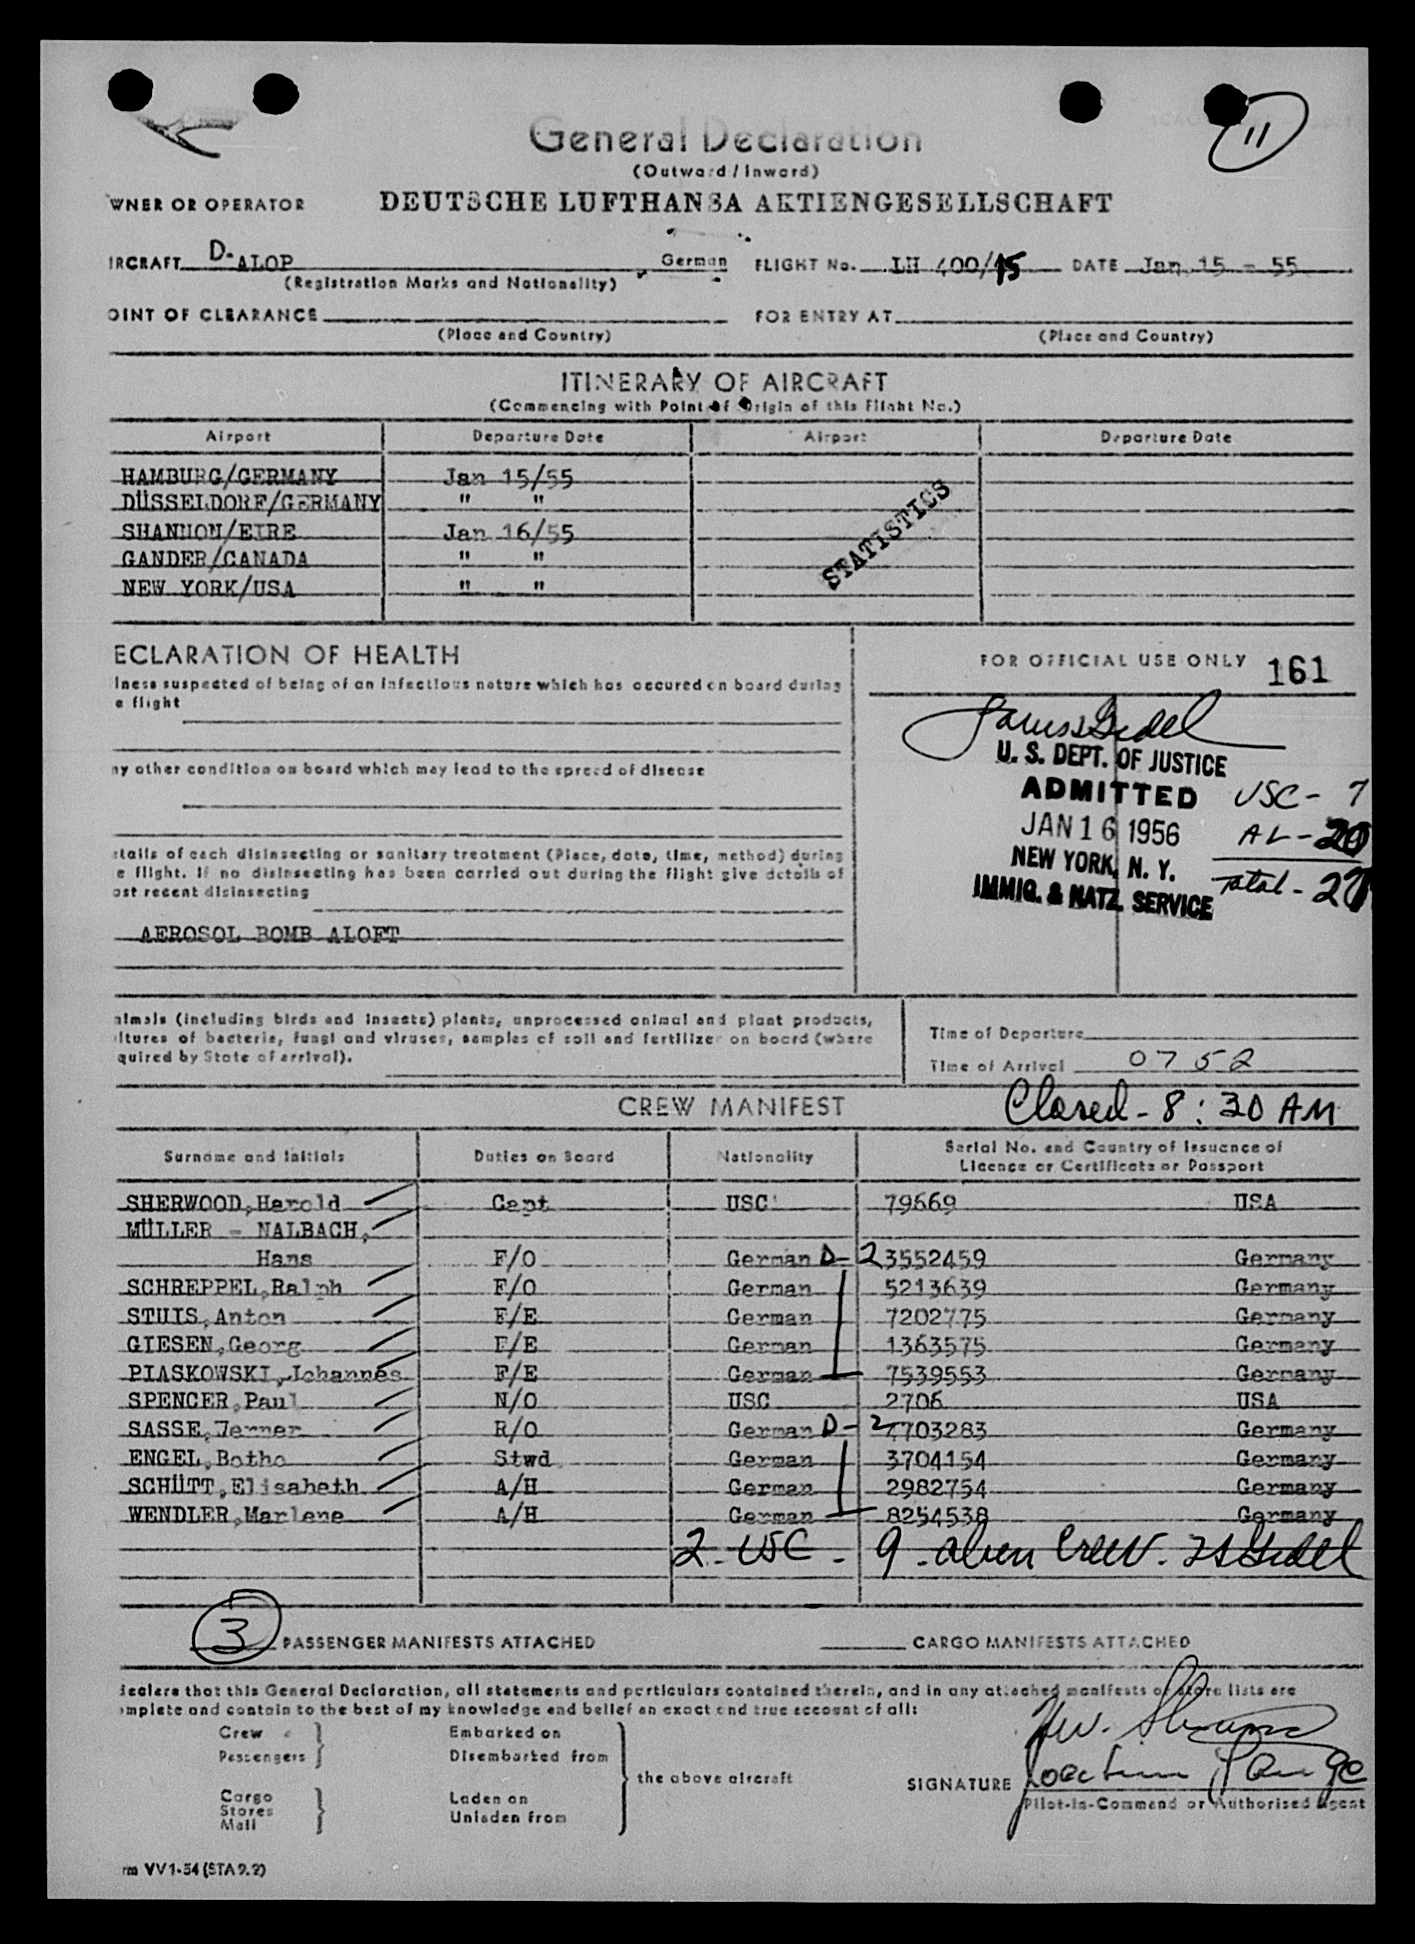 11
General Declaration
(Outward / Inward)
WNER OR OPERATOR DEUTSCHE LUFTHANSA AKTIENGESELLSCHAFT
IRCRAFT D-ALOP German FLIGHT No. LH 400/15 DATE Jan 15 - 55
(Registration Marks and Nationality)
OINT OF CLEARANCE FOR ENTRY AT
(Place and Country) (Place and Country)
ITINERARY OF AIRCRAFT
(Commencing with Point of Origin of this Flight No.)
Airport Departure Date Airport Departure Date
HAMBURG/GERMANY Jan 15/55
DÜSSELDORF/GERMANY " "
SHANNON/EIRE Jan 16/55
GANDER/CANADA " "
NEW YORK/USA " "
STATISTICS
ECLARATION OF HEALTH
lness suspected of being of an infectious nature which has occured on board during
e flight
ny other condition on board which may lead to the spread of disease
etails of each disinsecting or sanitary treatment (Place, date, time, method) during
e flight. If no disinsecting has been carried out during the flight give details of
ost recent disinsecting
AEROSOL BOMB ALOFT
FOR OFFICIAL USE ONLY 161
U. S. DEPT. OF JUSTICE
ADMITTED USC - 7
JAN 16 1956 AL - 20
NEW YORK, N. Y.
IMMIG. & NATZ. SERVICE Total - 27
nimals (including birds and insects) plants, unprocessed animal and plant products,
ltures of bacteria, fungi and viruses, samples of soil and fertilizer on board (where
quired by State of arrival).
Time of Departure
Time of Arrival 0752
Closed - 8:30 AM
CREW MANIFEST
Surname and Initials Duties on Board Nationality Serial No. and Country of Issuence of
Licence or Certificate or Passport
SHERWOOD, Harold Capt USC 79669 USA
MÜLLER - NALBACH,
Hans F/O German D-2 3552459 Germany
SCHREPPEL, Ralph F/O German 5213639 Germany
STUIS, Anton F/E German 7202775 Germany
GIESEN, Georg F/E German 1363575 Germany
PIASKOWSKI, Johannes F/E German 7539553 Germany
SPENCER, Paul N/O USC 2706 USA
SASSE, Werner R/O German D-2 7703283 Germany
ENGEL, Botho Stwd German 3704154 Germany
SCHÜTT, Elisabeth A/H German 2982754 Germany
WENDLER, Marlene A/H German 8254538 Germany
2 - USC - 9 - alien Crew.
3 PASSENGER MANIFESTS ATTACHED CARGO MANIFESTS ATTACHED
declare that this General Declaration, all statements and particulars contained therein, and in any attached manifests or store lists are
omplete and contain to the best of my knowledge and belief an exact and true account of all:
Crew Embarked on
Passengers Disembarked from
the above aircraft
Cargo Laden on
Stores Unladen from
Mail
SIGNATURE
Pilot-in-Command or Authorised Agent
rm VV 1-54 (STA 9.2)